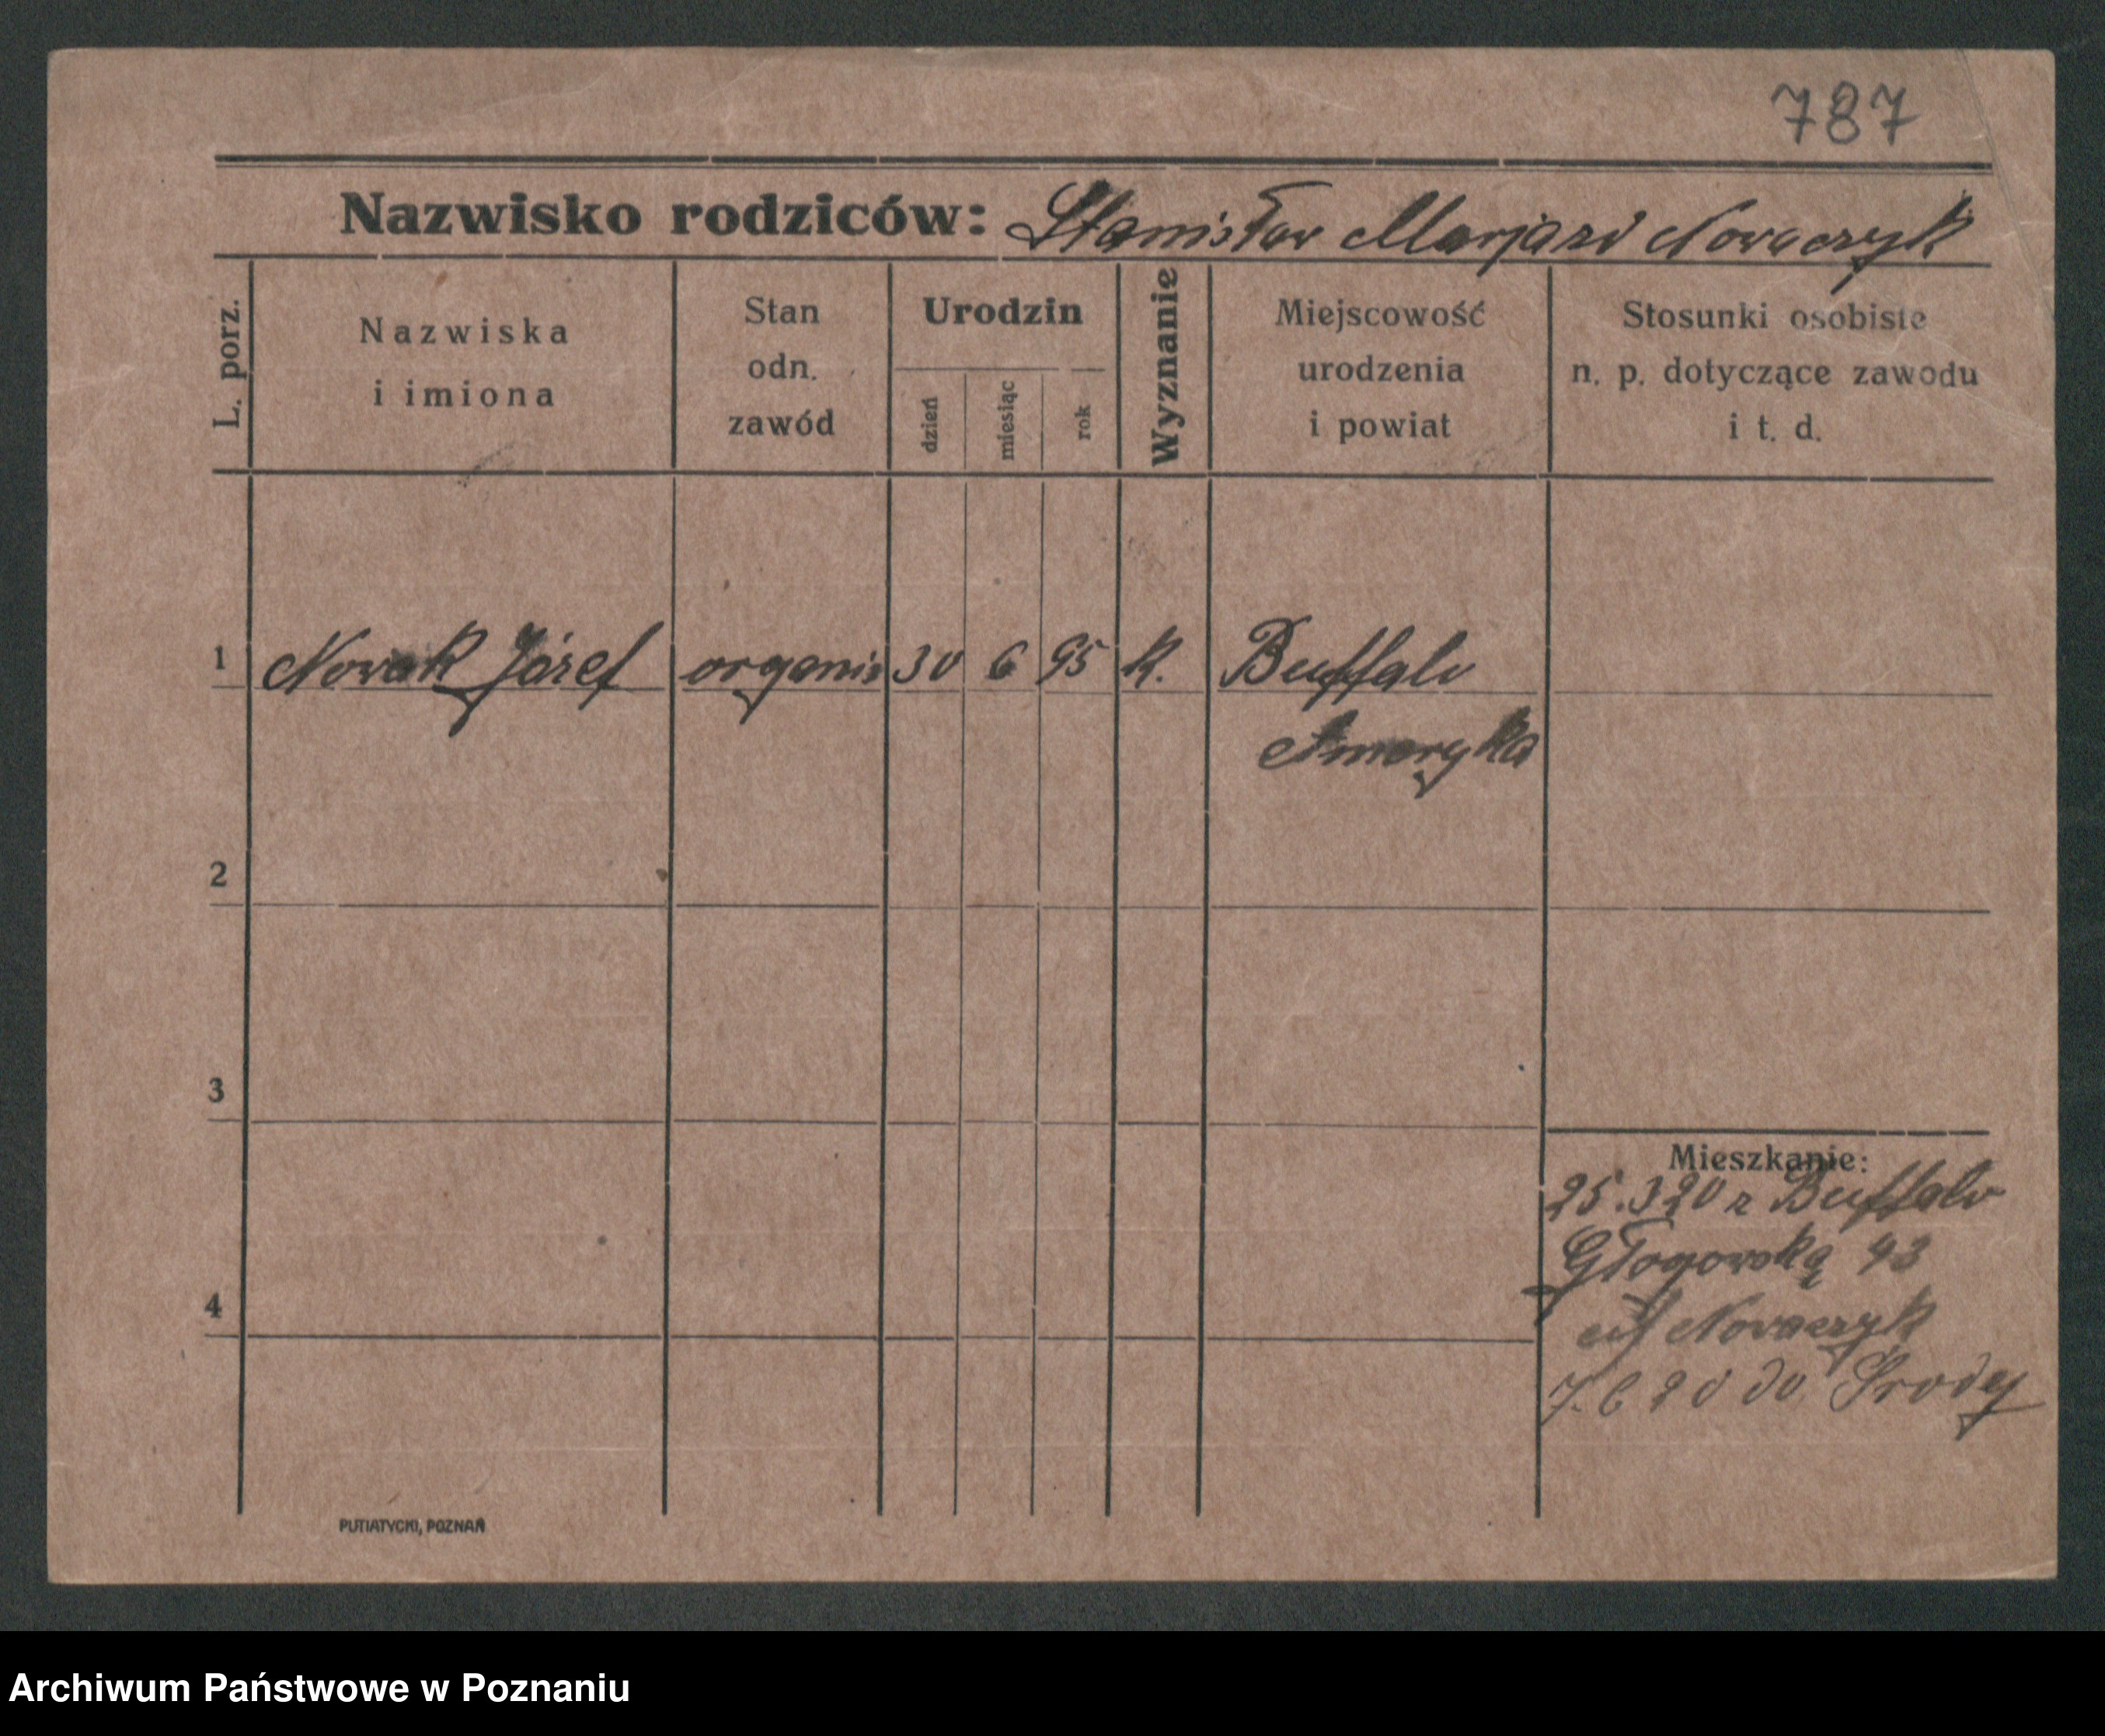 787
Nazwisko rodziców: Stanisław Marja zd Nowaczyk
L. porz.
Nazwiska
i imiona
Stan
odn.
zawód
Urodzin
dzień
miesiąc
rok
Wyznanie
Miejscowość
urodzenia
i powiat
Stosunki osobiste
n. p. dotyczące zawodu
i t. d.
1 Nowak Józef organis 30 6 95 k. Buffalo
Ameryka
2
3
4
Mieszkanie:
25.320 z Buffalo
Głogowską 43
Nowaczyk
7.6 20 do Środy
PUTIATYCKI, POZNAŃ
Archiwum Państwowe w Poznaniu